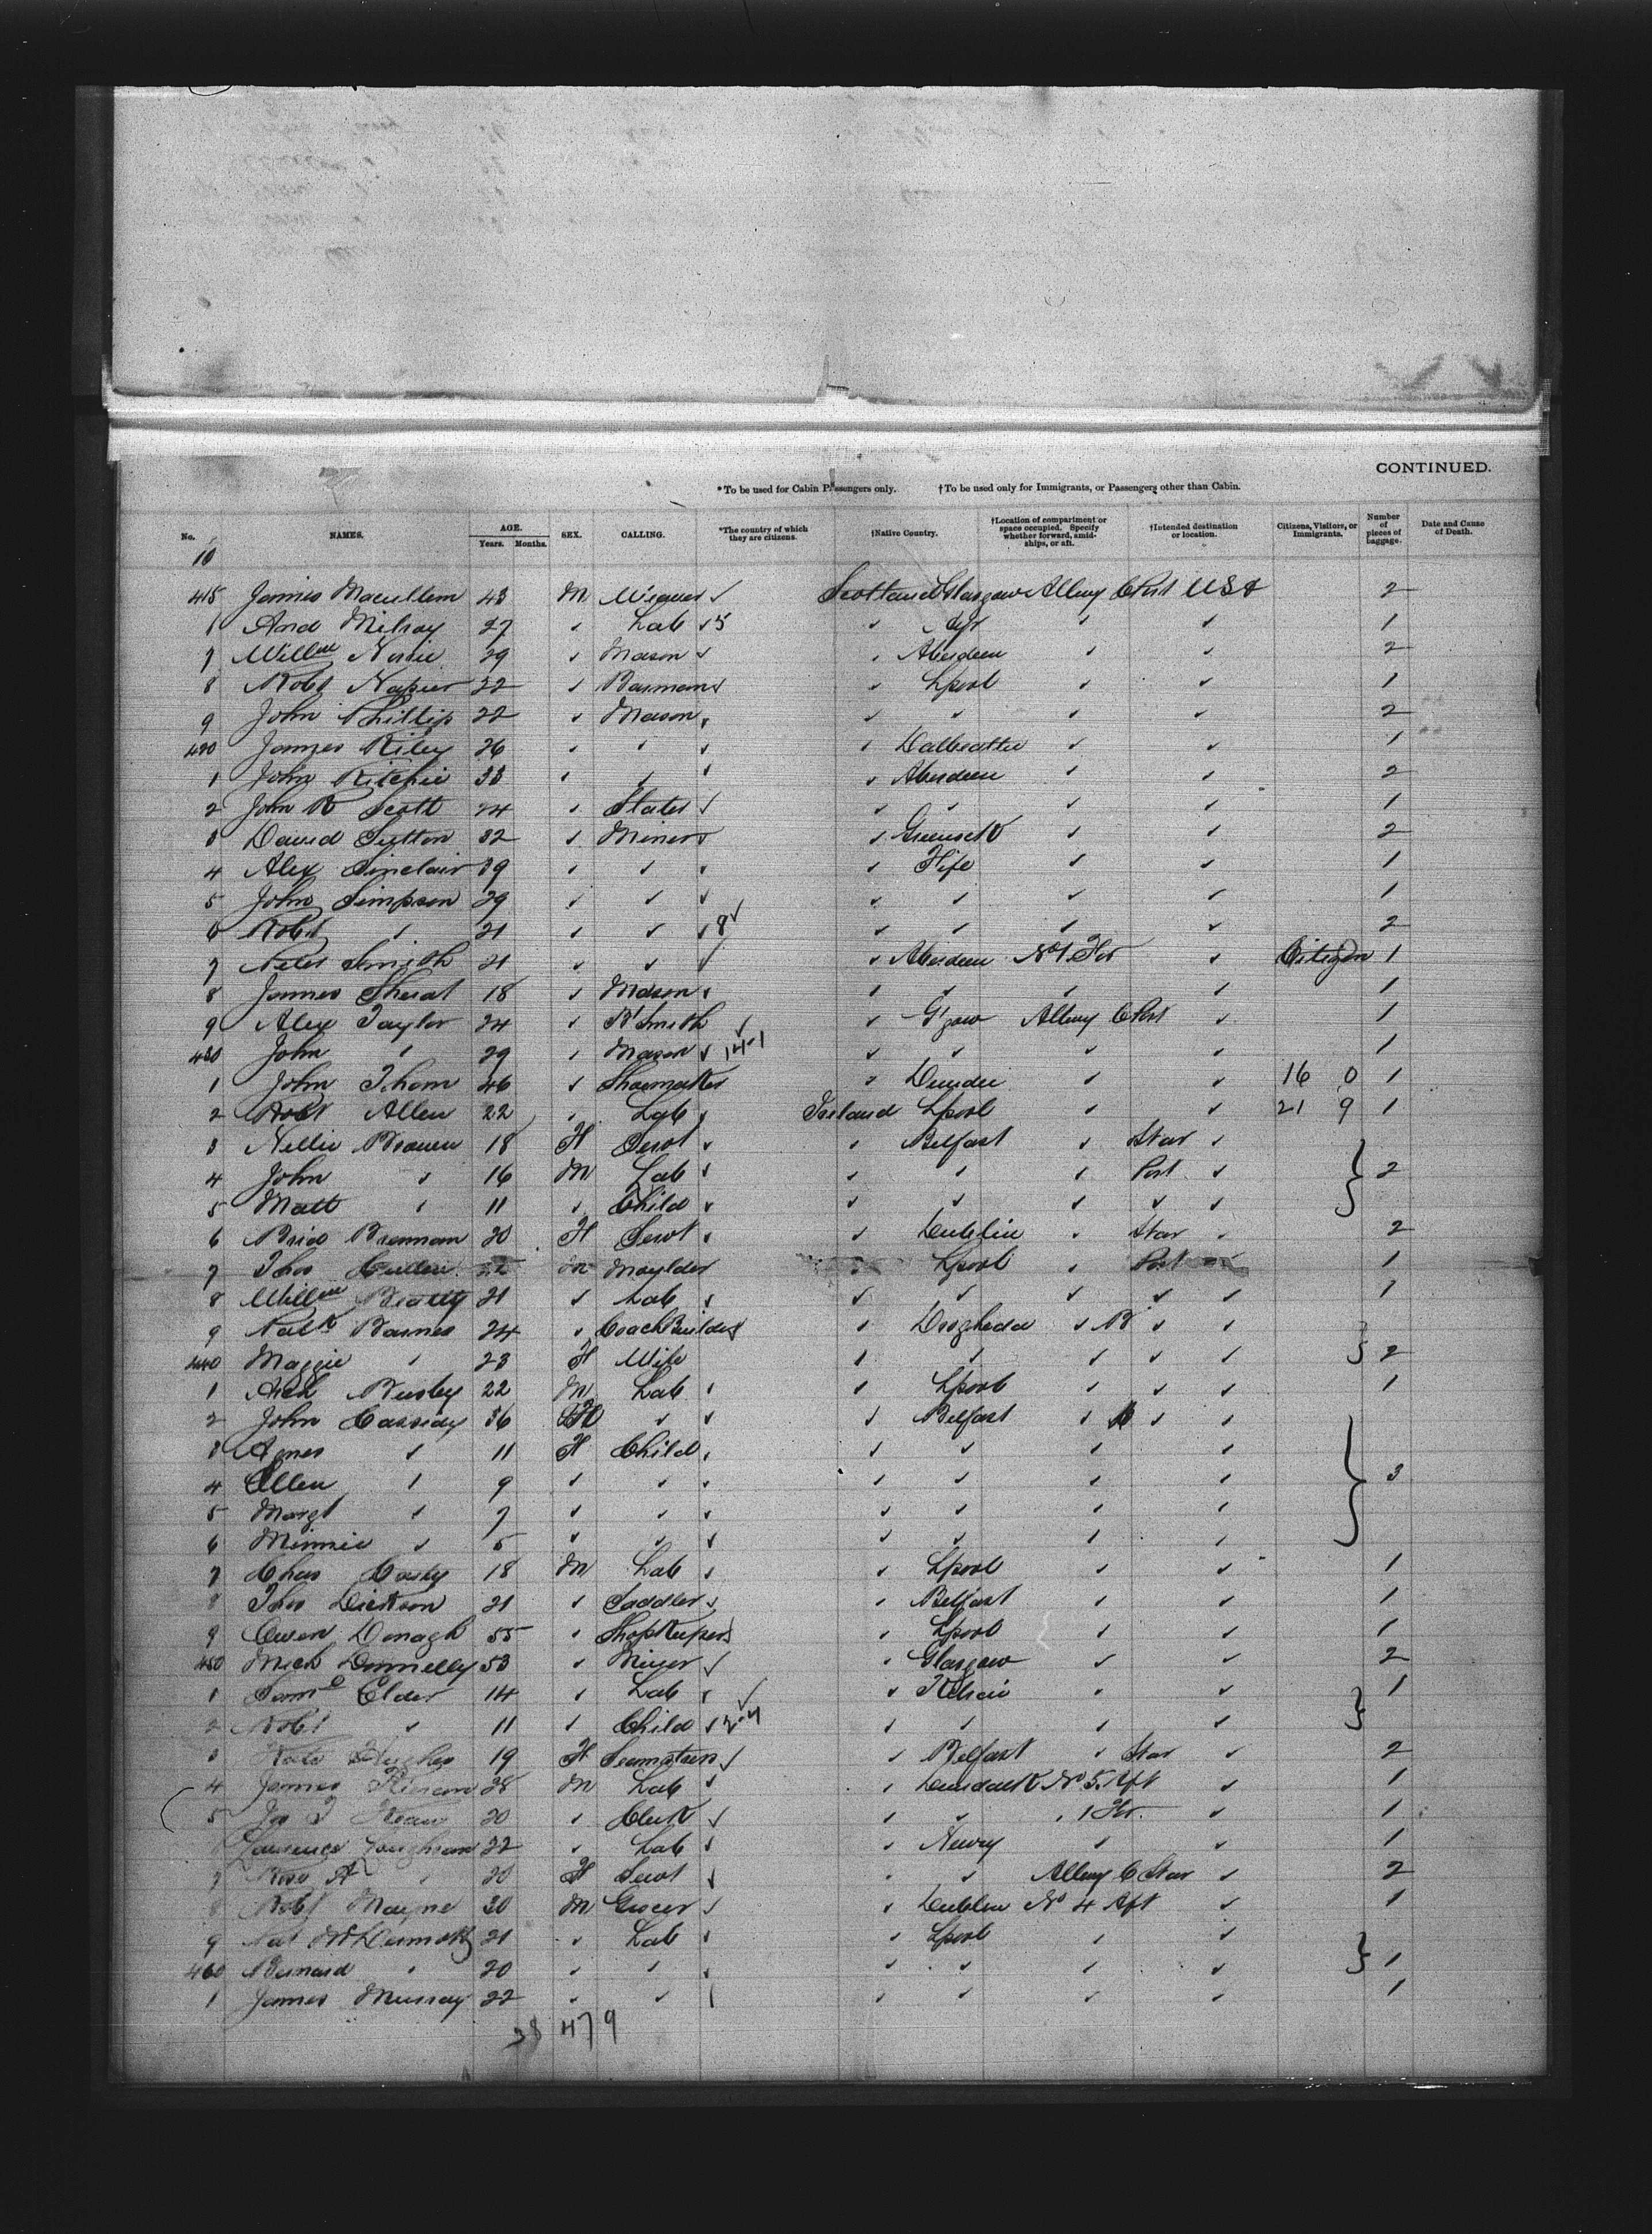 CONTINUED.
*To be used for Cabin Passengers only. †To be used only for Immigrants, or Passengers other than Cabin.
No. NAMES. AGE. Years. Months. SEX. CALLING. *The country of which they are citizens. †Native Country. †Location of compartment or space occupied. Specify whether forward, amidships, or aft. †Intended destination or location. Citizens, Visitors, or Immigrants. Number of pieces of baggage. Date and Cause of Death.
10
415 James 43 M ✓ Scotland Glasgow Alleyway C Port USA 2
27 ✓ Lab ✓ 5 ✓ Ayr ✓ ✓ 1
7 Willm 29 ✓ Mason ✓ ✓ Aberdeen ✓ ✓ 2
8 Robt Napier 32 ✓ Barman ✓ ✓ Lpool ✓ ✓ 1
9 John Phillip 22 ✓ Mason ✓ ✓ ✓ ✓ ✓ 2
420 James Riley 26 ✓ ✓ ✓ ✓ Dalbeattie ✓ ✓ 1
1 John Ritchie 33 ✓ ✓ ✓ ✓ Aberdeen ✓ ✓ 2
2 John R Scott 24 ✓ Slater ✓ ✓ ✓ ✓ ✓ 1
3 David Sutton 32 ✓ Miner ✓ ✓ Greenock ✓ ✓ 2
4 Alex Sinclair 39 ✓ ✓ ✓ ✓ Fife ✓ ✓ 1
5 John Simpson 29 ✓ ✓ ✓ ✓ ✓ ✓ ✓ 1
6 Robt ✓ 21 ✓ ✓ ✓ 8 ✓ ✓ ✓ ✓ ✓ 2
7 Peter Smith 21 ✓ ✓ ✓ ✓ Aberdeen No 1 For ✓ Citizen 1
8 James 18 ✓ Mason ✓ ✓ ✓ ✓ ✓ 1
9 Alex Taylor 24 ✓ B'Smith ✓ ✓ G'gow Alleyway C Port ✓ 1
430 John ✓ 29 ✓ Mason ✓ 14-1 ✓ ✓ ✓ ✓ 1
1 John Thom 46 ✓ Shoemaker ✓ Dundee ✓ ✓ 16 0 1
2 Robt Allen 22 ✓ Lab ✓ Ireland Lpool ✓ ✓ 21 9 1
3 Nellie Brown 18 F Servt ✓ ✓ Belfast ✓ Star ✓
4 John ✓ 16 M Lab ✓ ✓ ✓ ✓ Port ✓ 2
5 Matt ✓ 11 ✓ Child ✓ ✓ ✓ ✓ ✓ ✓
6 Brid Brennan 20 F Servt ✓ ✓ Dublin ✓ Star ✓ 2
7 Thos Cullen 22 M Moulder ✓ Lpool ✓ Port ✓ 1
8 Willm Beatty 21 ✓ Lab ✓ ✓ ✓ ✓ ✓ ✓ 1
9 Patk Barnes 24 ✓ Coach Builder ✓ ✓ Drogheda ✓ B ✓ ✓
440 Maggie ✓ 23 F Wife ✓ ✓ ✓ ✓ ✓ 2
1 Arch Busby 22 M Lab ✓ ✓ Lpool ✓ ✓ ✓ 1
2 John Cassidy 36 M ✓ ✓ ✓ Belfast ✓ B ✓ ✓
3 Agnes ✓ 11 F Child ✓ ✓ ✓ ✓ ✓
4 Ellen ✓ 9 ✓ ✓ ✓ ✓ ✓ ✓ ✓ 3
5 Margt ✓ 7 ✓ ✓ ✓ ✓ ✓ ✓ ✓
6 Minnie ✓ 5 ✓ ✓ ✓ ✓ ✓ ✓ ✓
7 Chas 18 M Lab ✓ ✓ Lpool ✓ ✓ 1
8 Thos Dickson 21 ✓ Saddler ✓ ✓ Belfast ✓ ✓ 1
9 Owen Donagh 55 ✓ Shopkeeper ✓ ✓ Lpool ✓ ✓ 1
450 Mich Donnelly 53 ✓ Miner ✓ ✓ Glasgow ✓ ✓ 2
1 Saml Elder 14 ✓ Lab ✓ ✓ ✓ ✓ ✓ 1
2 Robt ✓ 11 ✓ Child ✓ 2-4 ✓ ✓ ✓ ✓
3 Kate Hughes 19 F ✓ ✓ Belfast ✓ Star ✓ 2
4 James 28 M Lab ✓ ✓ Dundalk No 5 Aft ✓ 1
5 20 ✓ Clerk ✓ ✓ ✓ ✓ 1 For. ✓ 1
Laurence Loughran 22 ✓ Lab ✓ ✓ Newry ✓ ✓ 1
7 Rose A ✓ 20 F Servt ✓ ✓ ✓ Alleyway C Star ✓ 2
8 Robt Mayne 30 M Grocer ✓ ✓ Dublin No 4 Aft ✓ 1
9 Pat McDermott 21 ✓ Lab ✓ ✓ Lpool ✓ ✓
460 Bernard ✓ 20 ✓ ✓ ✓ ✓ ✓ ✓ ✓ 1
1 James Murray 22 ✓ ✓ ✓ ✓ ✓ ✓ ✓ 1
38 479